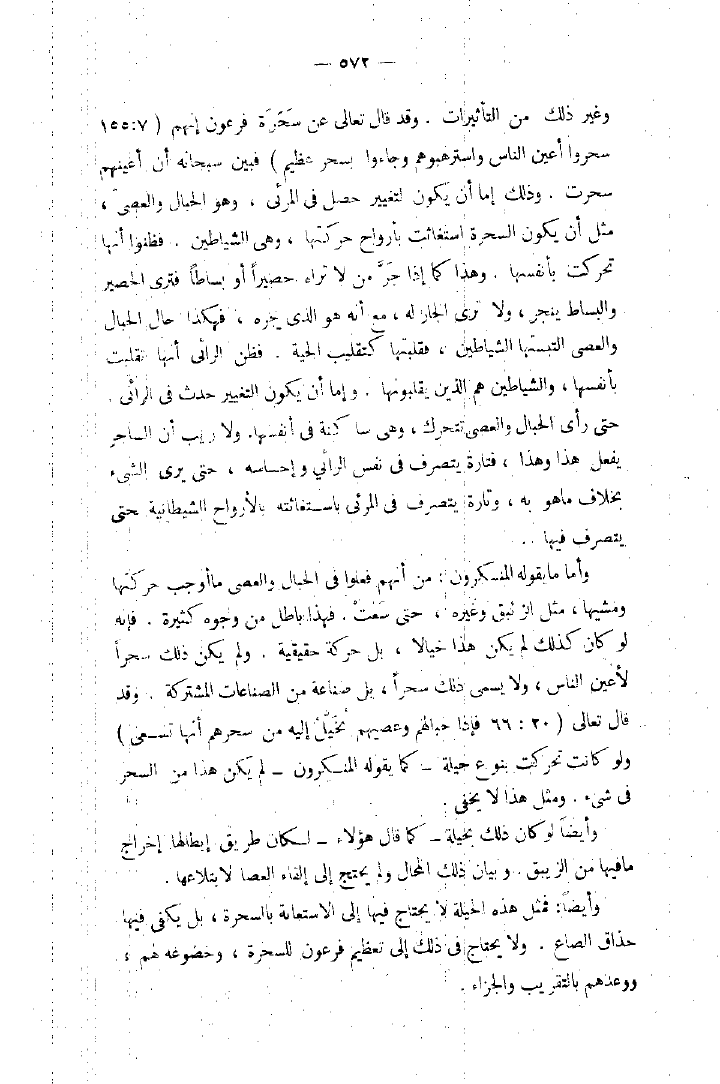 — ٥٧٢ —
وغير ذلك من التأثيرات . وقد قال تعالى عن سَحَرَة فرعون إنهم ( ١٥٥:٧
سحروا أعين الناس واسترهبوهم وجاءوا بسحر عظيم ) فبين سبحانه أن أعينهم
سحرت . وذلك إما أن يكون لتغيير حصل فى المرئى ، وهو الحبال والعصى ،
مثل أن يكون السحرة استغاثت بأرواح حركتها ، وهى الشياطين . فظنوا أنها
تحركت بأنفسها . وهذا كما إذا جَرَّ من لا تراه حصيراً أو بساطاً فترى الحصير
والبساط ينجر ، ولا ترى الجار له ، مع أنه هو الذى يجره ، فهكذا حال الحبال
والعصى التبستها الشياطين ، فقلبتها كتقليب الحية . فظن الرائى أنها تقلبت
بأنفسها ، والشياطين هم الذين يقلبونها . وإما أن يكون التغيير حدث فى الرائى .
حتى رأى الحبال والعصى تتحرك ، وهى ساكنة فى أنفسها. ولا ريب أن الساحر
يفعل هذا وهذا ، فتارة يتصرف فى نفس الرائي وإحساسه ، حتى يرى الشىء
بخلاف ماهو به ، وتارة يتصرف فى المرئى باستغاثته بالأرواح الشيطانية حتى
يتصرف فيها ..
وأما مايقوله المنكرون : من أنهم فعلوا فى الحبال والعصى ماأوجب حركتها
ومشيها ، مثل الزئبق وغيره ، حتى سَعَتْ . فهذا باطل من وجوه كثيرة . فإنه
لو كان كذلك لم يكن هذا خيالا ، بل حركة حقيقية . ولم يكن ذلك سحراً
لأعين الناس ، ولا يسمى ذلك سحراً ، بل صناعة من الصناعات المشتركة . وقد
قال تعالى ( ٢٠ : ٦٦ فإذا حبالهم وعصيهم يُخَيَّلُ إليه من سحرهم أنها تسعى )
ولو كانت تحركت بنوع حيلة — كما يقوله المنكرون — لم يكن هذا من السحر
فى شىء . ومثل هذا لا يخفى .
وأيضاً لو كان ذلك بحيلة — كما قال هؤلاء — لكان طريق إبطالها إخراج
مافيها من الزيبق . وبيان ذلك المحال ولم يحتج إلى إلقاء العصا لابتلاعها .
وأيضاً: فمثل هذه الحيلة لا يحتاج فيها إلى الاستعانة بالسحرة ، بل يكفى فيها
حذاق الصناع . ولا يحتاج فى ذلك إلى تعظيم فرعون للسحرة ، وخضوعه لهم ،
ووعدهم بالتقريب والجزاء .